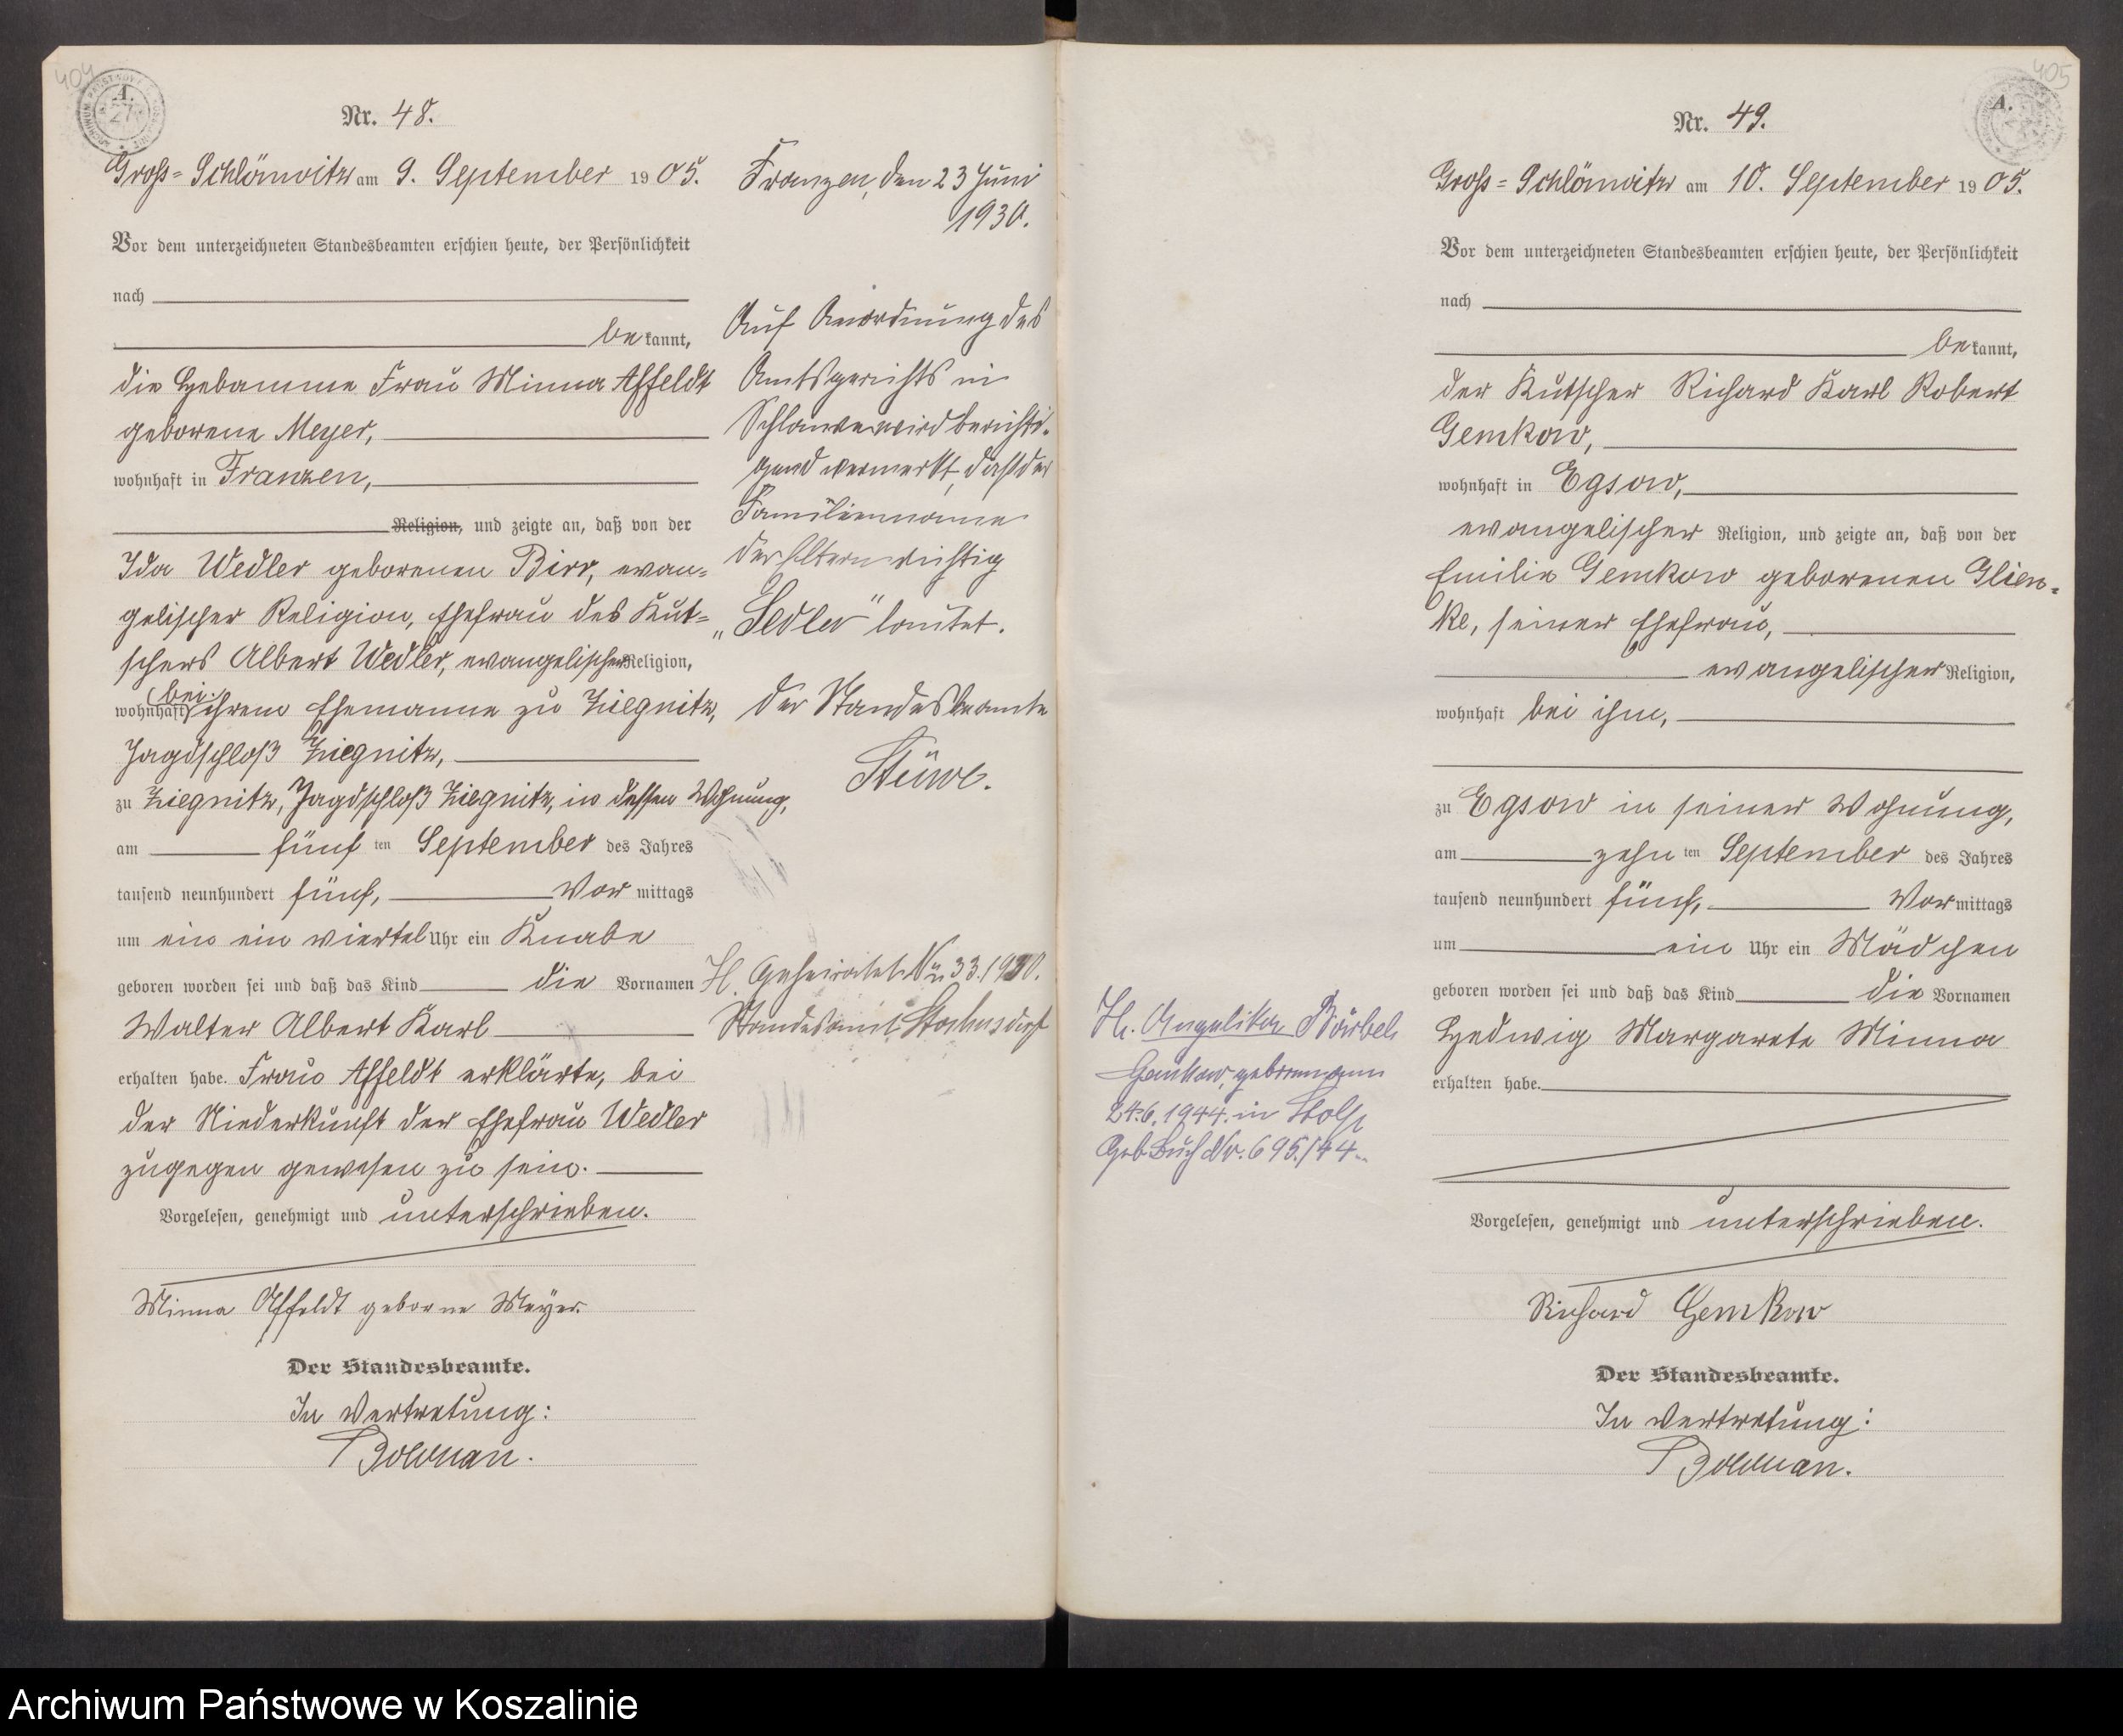 404
A.
Nr. 48.
Groß-Schlönwitz am 9. September 1905.
Vor dem unterzeichneten Standesbeamten erschien heute, der Persönlichkeit
nach
bekannt,
die Hebamme Frau Minna Affeldt
geborene Meyer,
wohnhaft in Franzen,
Religion, und zeigte an, daß von der
Ida Wedler geborenen Birr, evan-
gelischer Religion, Ehefrau des Kut-
schers Albert Wedler, evangelischer Religion,
wohnhaft (bei) ihrem Ehemanne zu Ziegnitz,
Jagdschloß Ziegnitz,
zu Ziegnitz, Jagdschloß Ziegnitz, in dessen Wohnung,
am fünften September des Jahres
tausend neunhundert fünf, Vormittags
um ein ein viertel Uhr ein Knabe
geboren worden sei und daß das Kind die Vornamen
Walter Albert Karl
erhalten habe. Frau Affeldt erklärte, bei
der Niederkunft der Ehefrau Wedler
zugegen gewesen zu sein.
Vorgelesen, genehmigt und unterschrieben.
Minna Affeldt geborne Meyer.
Der Standesbeamte.
In Vertretung:
Bolduan.
Franzen, den 23 Juni
1930.
Auf Anordnung des
Amtsgerichts in
Schlawe wird berichti-
gend vermerkt, daß der
Familienname
der Eltern richtig
„Sedler" lautet.
Der Standesbeamte
Stüwe.
H. Geheiratet Nr. 33.1930.
Standesamt
405
A.
Nr. 49.
Groß-Schlönwitz am 10. September 1905.
Vor dem unterzeichneten Standesbeamten erschien heute, der Persönlichkeit
nach
bekannt,
der Kutscher Richard Karl Robert
Gemkow,
wohnhaft in Egsow,
evangelischer Religion, und zeigte an, daß von der
Emilie Gemkow geborenen Glien-
ke, seiner Ehefrau,
evangelischer Religion,
wohnhaft bei ihm,
zu Egsow in seiner Wohnung,
am zehnten September des Jahres
tausend neunhundert fünf, Vormittags
um ein Uhr ein Mädchen
geboren worden sei und daß das Kind die Vornamen
Hedwig Margarete Minna
erhalten habe.
Vorgelesen, genehmigt und unterschrieben.
Richard Gemkow
Der Standesbeamte.
In Vertretung:
Bolduan.
Angelika Bärbel
Gemkow, geboren am
24.6.1944. in Stolp
Geb. Buch Nr. 695/44.
Archiwum Państwowe w Koszalinie